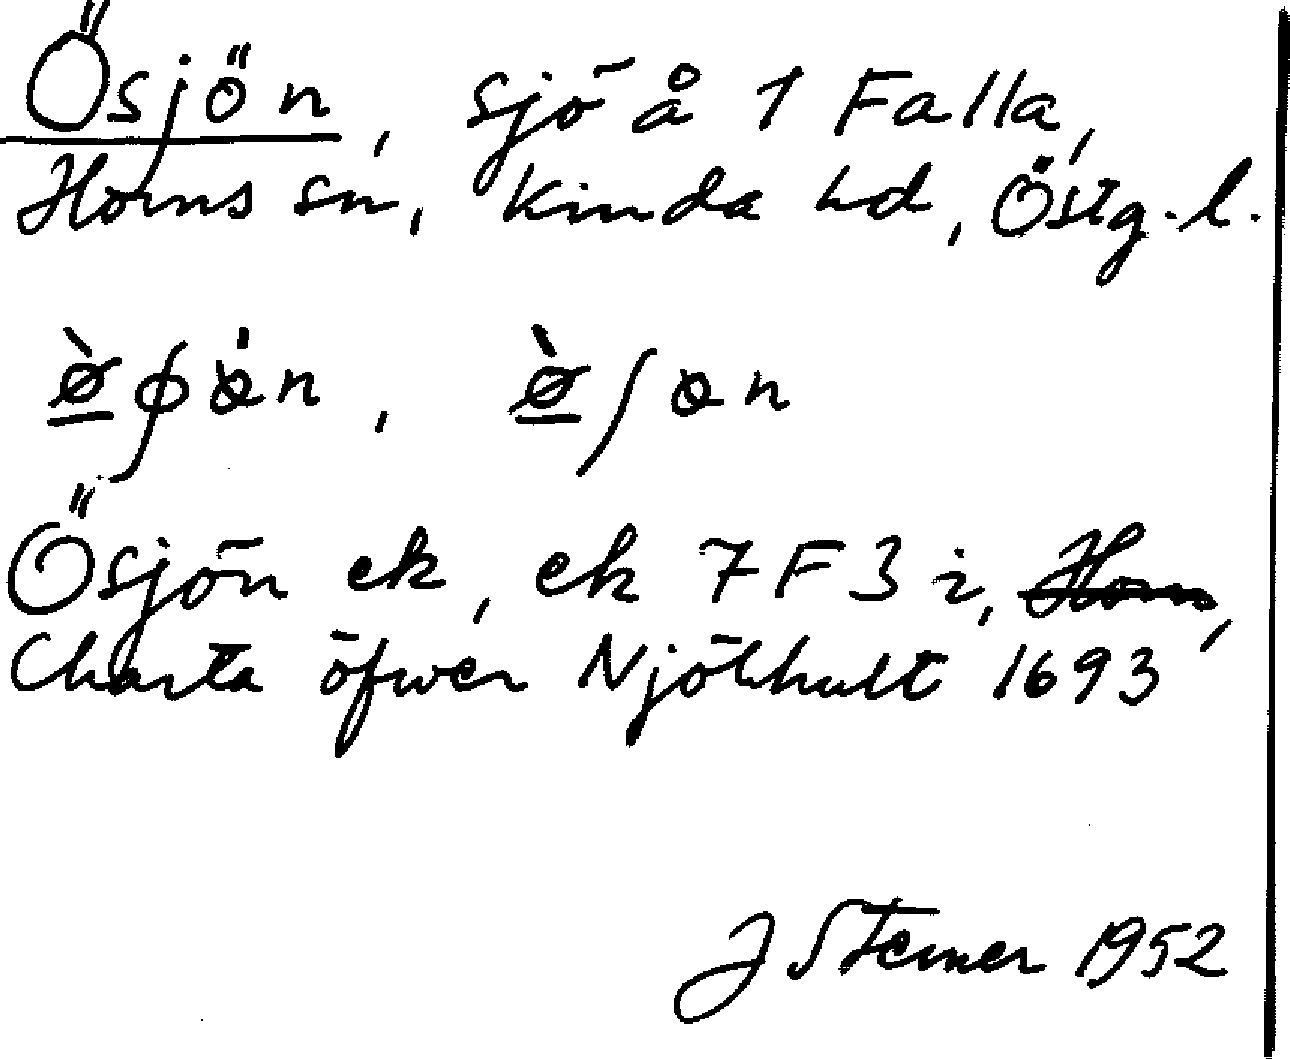 Ösjön, sjö å 1 Falla,
Horns sn, Kinda hd, Östg. l.
Ösjön ek, ek 7 F 3 i, Horn,
Charta öfwer Njölhult 1693
J Sterner 1952